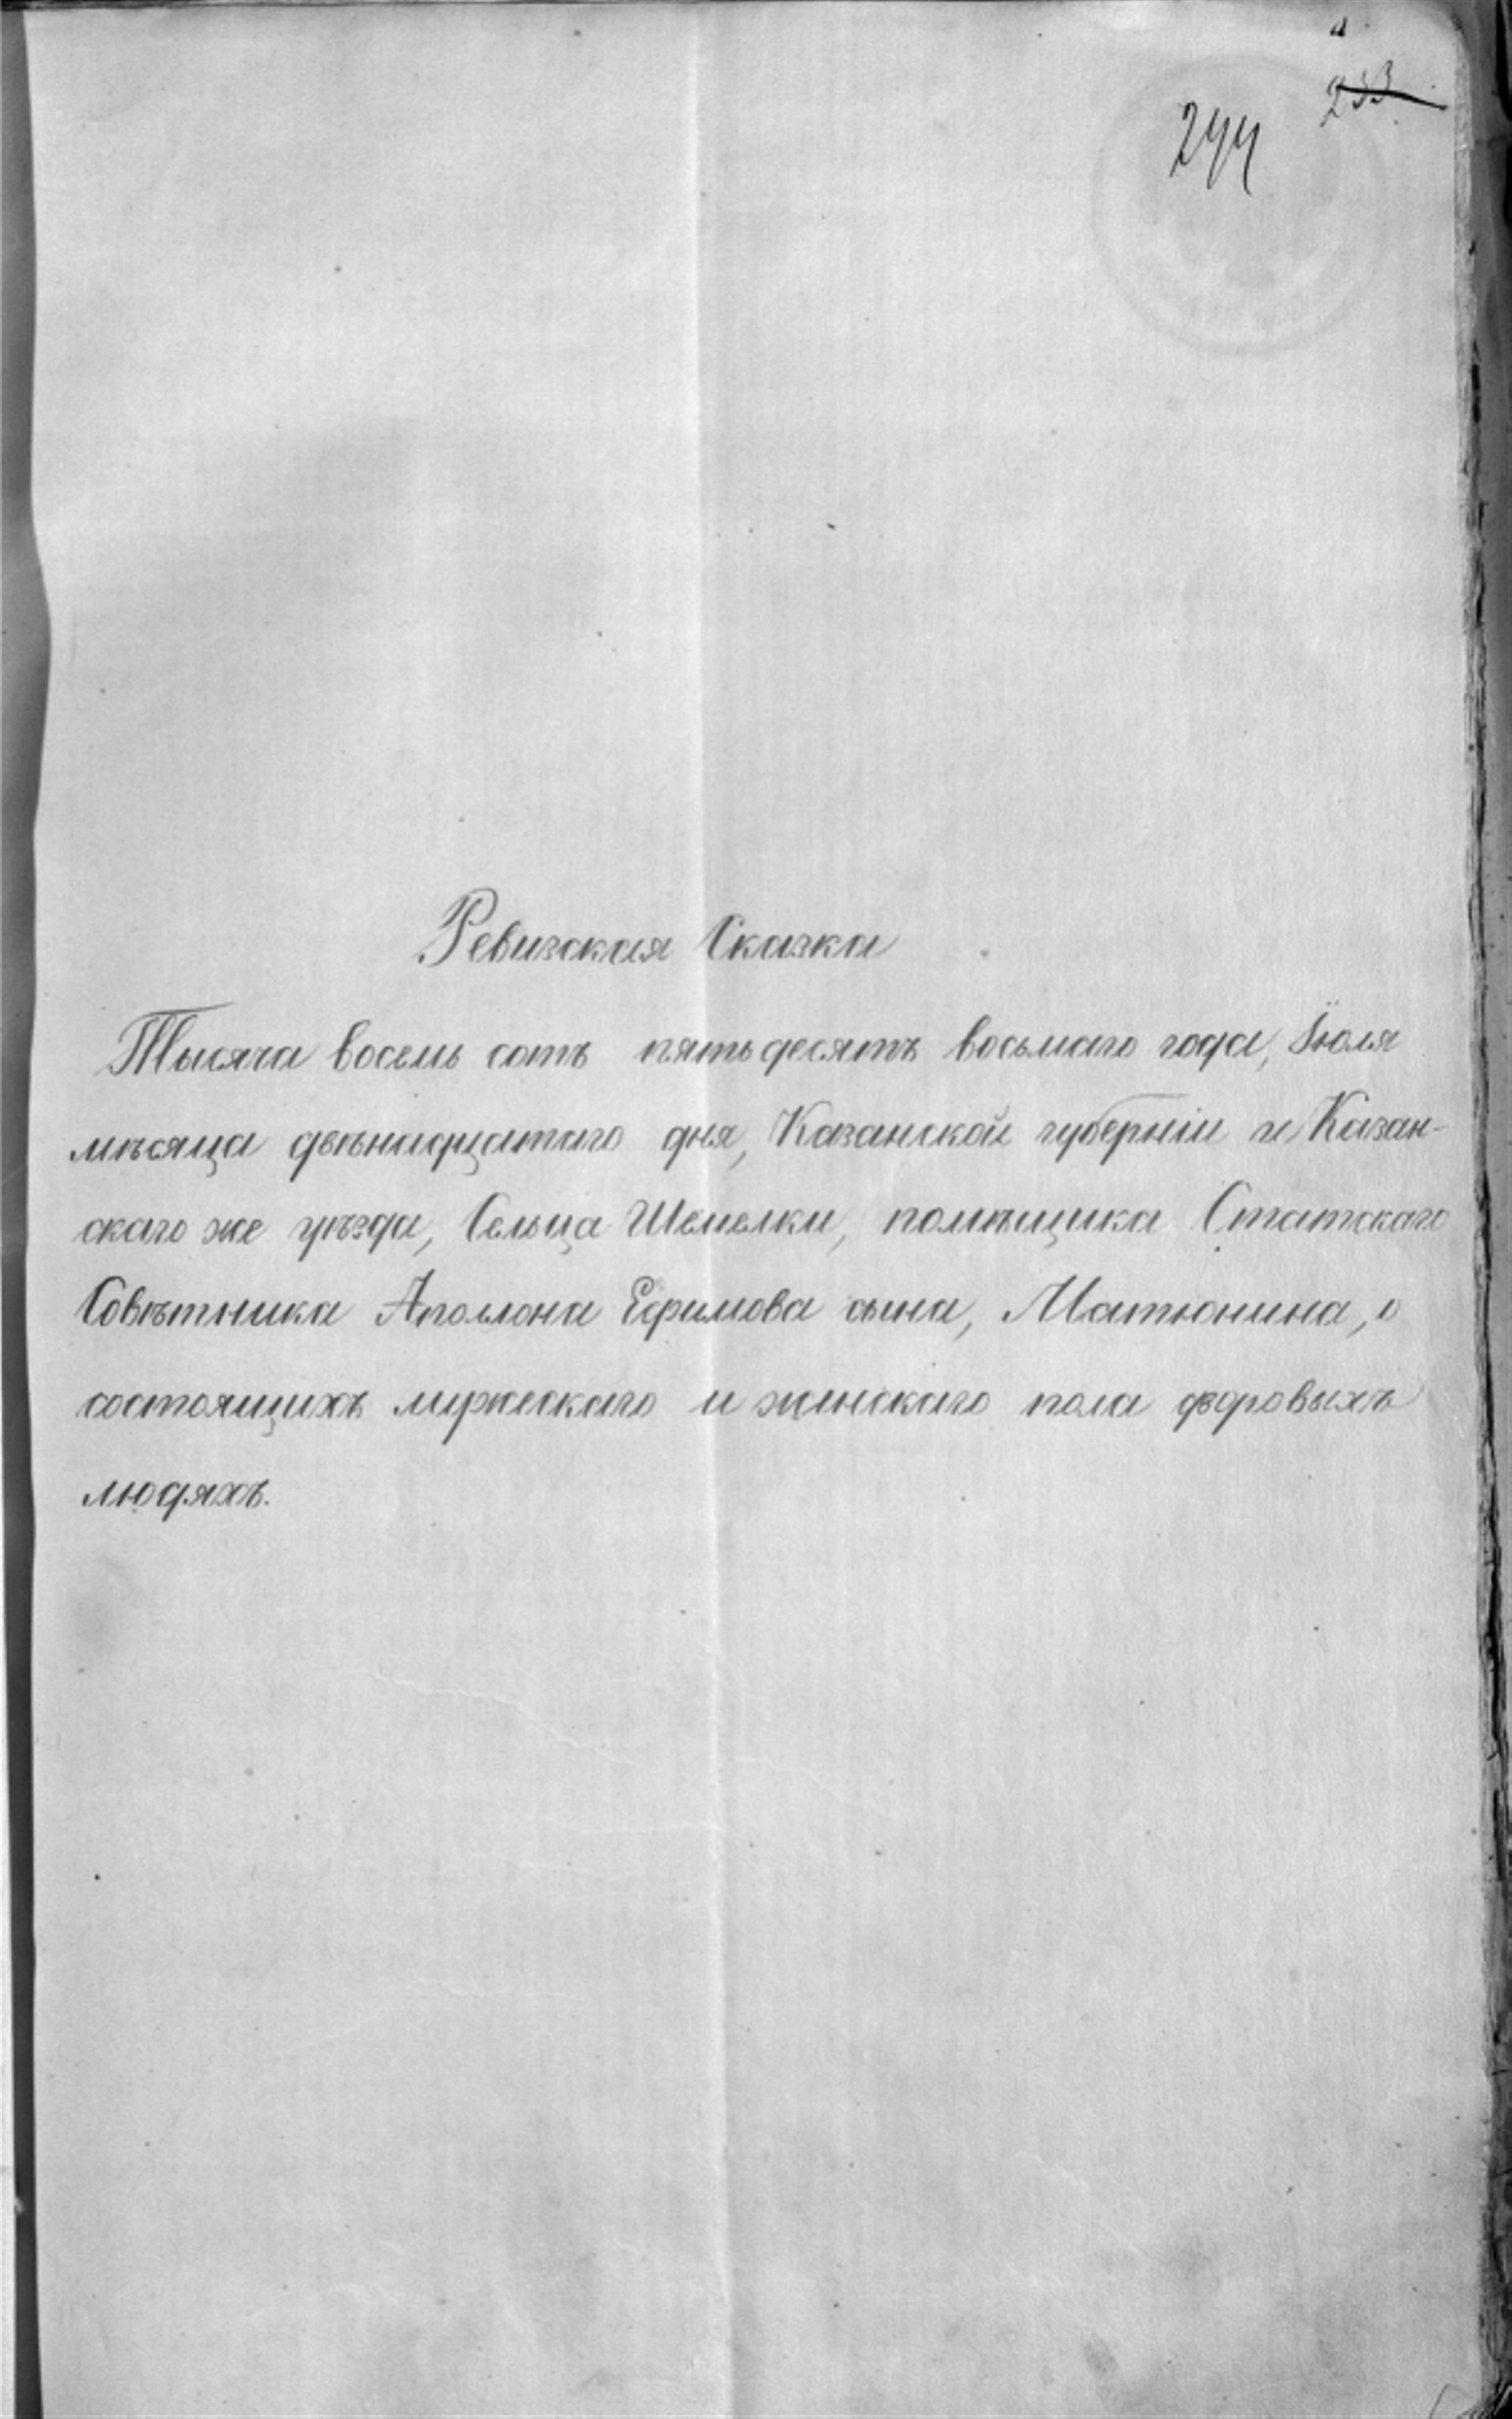 233
244
Ревизская Сказка
Тысяча восемь сотъ пятьдесятъ восьмаго года, Іюля
мѣсяца двѣнадцатаго дня, Казанской губерніи и Казан-
скаго же уѣзда, Сельца Шемелки, помѣщика Статскаго
Совѣтника Аполона Ефимова сына, Матюнина, о
состоящихъ мужескаго и женскаго пола дворовыхъ
людяхъ.